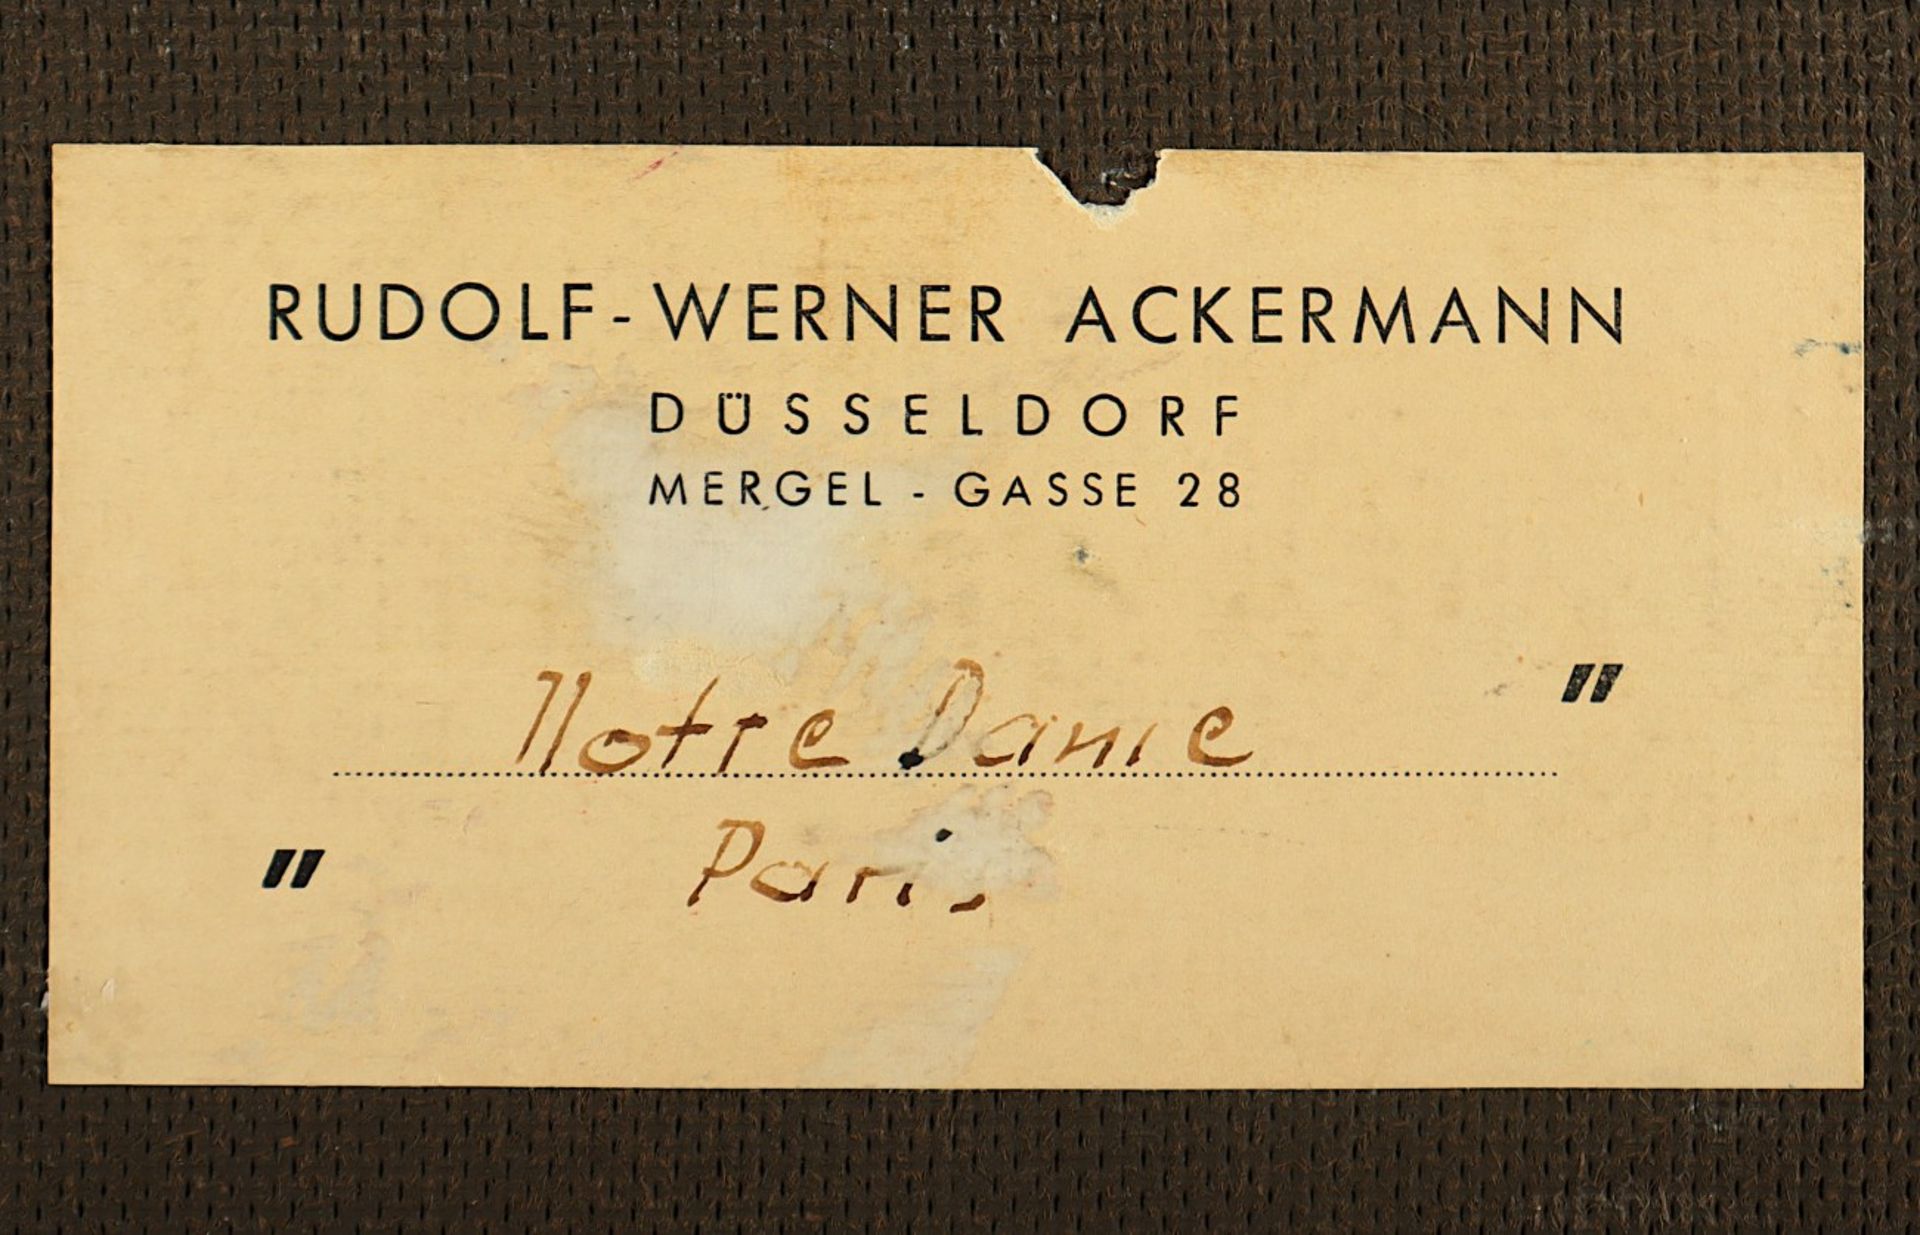 RUDOLF-WERNER ACKERMANN
DÜSSELDORF
MERGEL-GASSE 28
Notre Dame "
" Paris